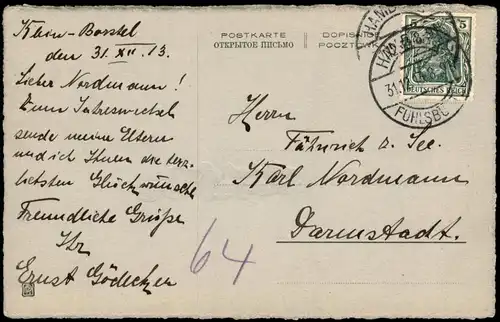 Klein-Borstel
den 31. XII. 13.
Lieber Nordmann!
Zum Jahreswechsel
sende meine Eltern
und ich Ihnen die herz-
lichsten Glückwünsche
Freundliche Grüße
Ihr
Ernst Gödecken
POSTKARTE
ОТКРЫТОЕ ПИСЬМО
DOPIS
POCZT
5 5
DEUTSCHES REICH
HAMB
31.12
FUHLSB
Herrn
Fähnrich z. See.
Karl Nordmann
Darmstadt.
64